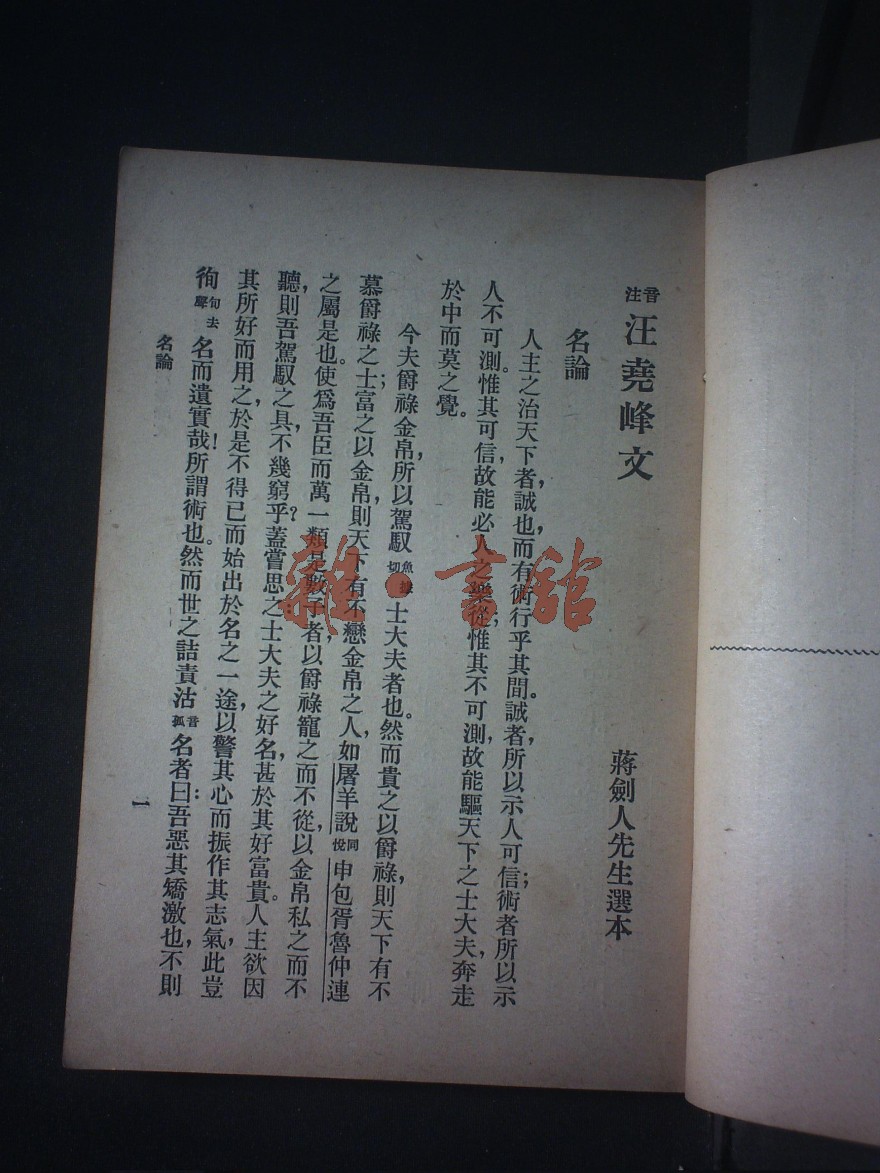 音注 汪堯峰文
蔣劍人先生選本
名論
人主之治天下者，誠也，而有術行乎其間。誠者所以示人可信，術者所以示
人不可測。惟其可信，故能必人之樂從；惟其不可測，故能驅天下之士大夫，奔走
於中而莫之覺。
今夫爵祿金帛，所以駕馭魚據切士大夫者也。然而貴之以爵祿，則天下有不
慕爵祿之士；富之以金帛，則天下有不戀金帛之人，如屠羊說同悅申包胥魯仲連
之屬是也。使爲吾臣而萬一類是數子者，以爵祿寵之而不從，以金帛私之而不
聽，則吾駕馭之具，不幾窮乎？蓋嘗思之：士大夫之好名，甚於其好富貴。人主欲因
其所好而用之，於是不得已而始出於名之一途，以警其心而振作其志氣，此豈
徇旬去聲名而遺實哉！所謂術也。然而世之詰責沽音孤名者曰：吾惡其矯激也，不則
名論
一
雜·書館